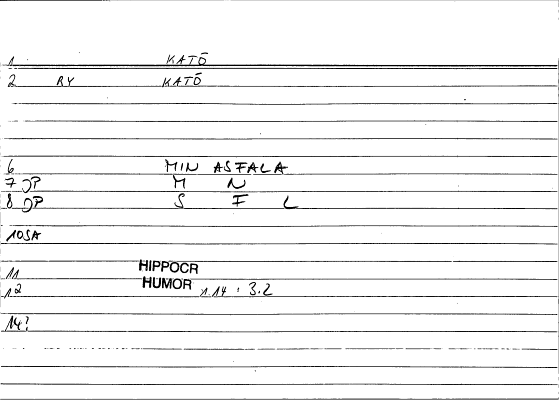 1 KATŌ
2 RY KATŌ
6 MIN ASFALA
7 JP M N
8 JP S F L
10SA
11 HIPPOCR
12 HUMOR 1.14 : 3.2
14?